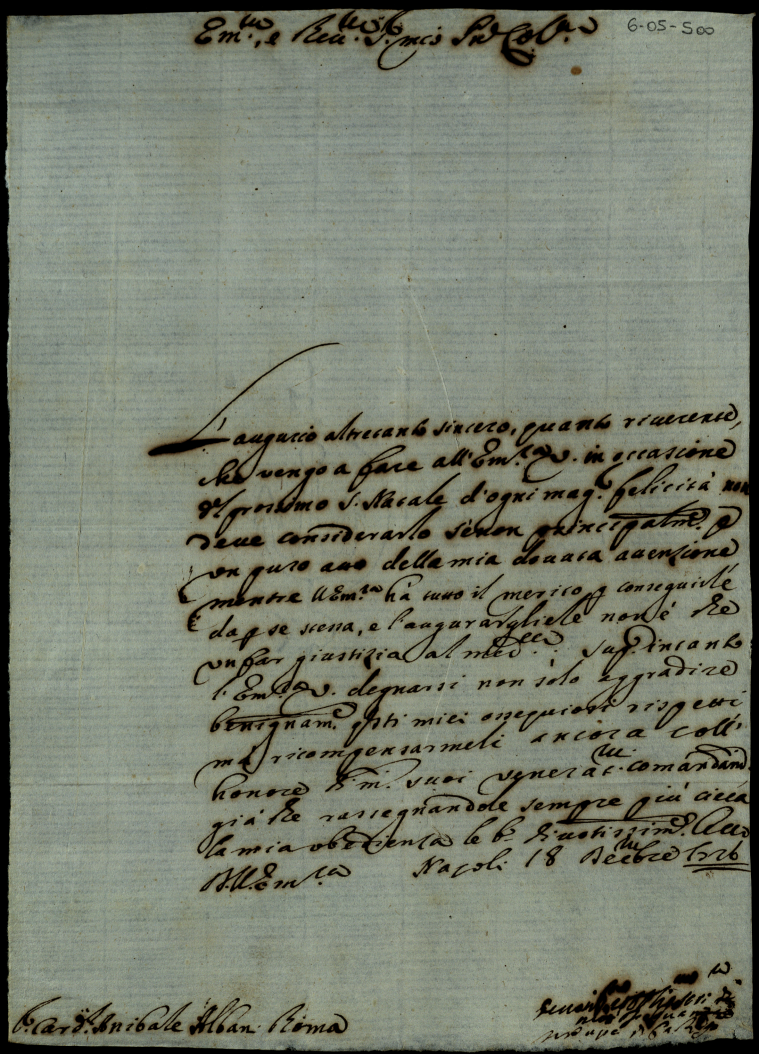 6-05-500
Em.mo e Reu.mo S.r mio P.ne Col.mo
L'augurio altretanto sincero, quanto riuerente,
che vengo a fare all'Em.za V. in occasione
del prossimo S. Natale d'ogni mag.r felicità non
deve considerarlo se non principalm.e p
un puro atto della mia douuta attenzione
mentre V. Em.za hà tutto il merito p conseguirle
da p se stessa, e l'augurargliele non é che
un far giustizia al med.
Sup. intanto
l'Em.za V. degnarsi non solo aggradire
benignam.e q.sti miei ossequiosi rispetti
mà ricompensarmeli ancora coll'
honore de suoi venerat.mi comandam.
già che rassegnandole sempre più
la mia obedienza le b. diuotissim.e
D. V. Em.za Napoli 18 Decbre 1726
Card.l Anibale Alban. Roma